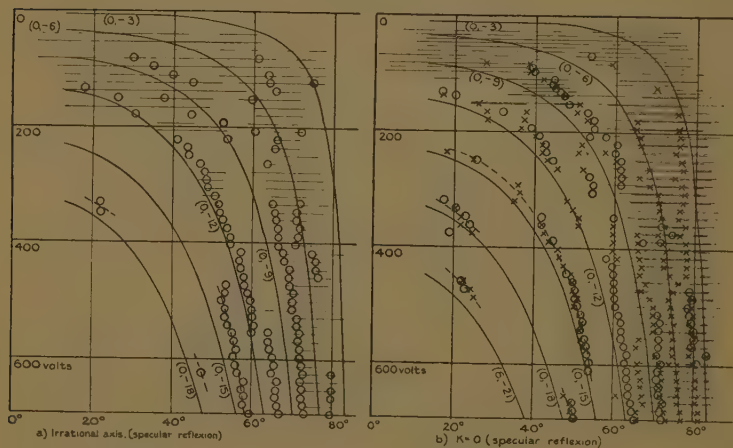 0
(0,-3)
(0,-6)
200
400
600 volts
(0,-12)
(0,-9)
(0,-15)
(0,-18)
0° 20° 40° 60° 80°
a) Irrational axis, (specular reflexion)
0
(0,-3)
(0,-6)
(0,-9)
200
400
600 volts
(0,-12)
(0,-15)
(0,-18)
0° 20° 40° 60° 80°
b) K=0 (specular reflexion)